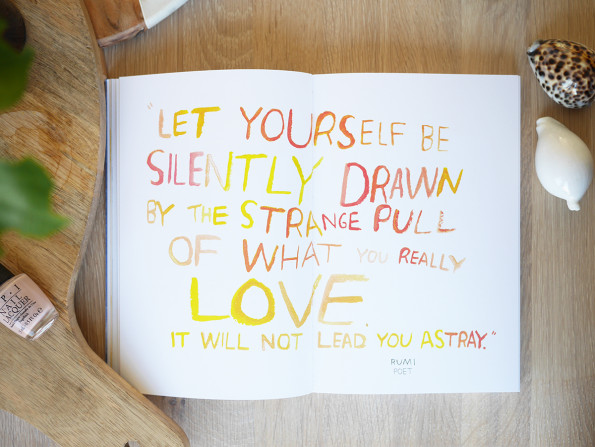 "LET YOURSELF BE
SILENTLY DRAWN
BY THE STRANGE PULL
OF WHAT YOU REALLY
LOVE.
IT WILL NOT LEAD YOU ASTRAY."
RUMI
POET
O·P·I
NAIL
LACQUER